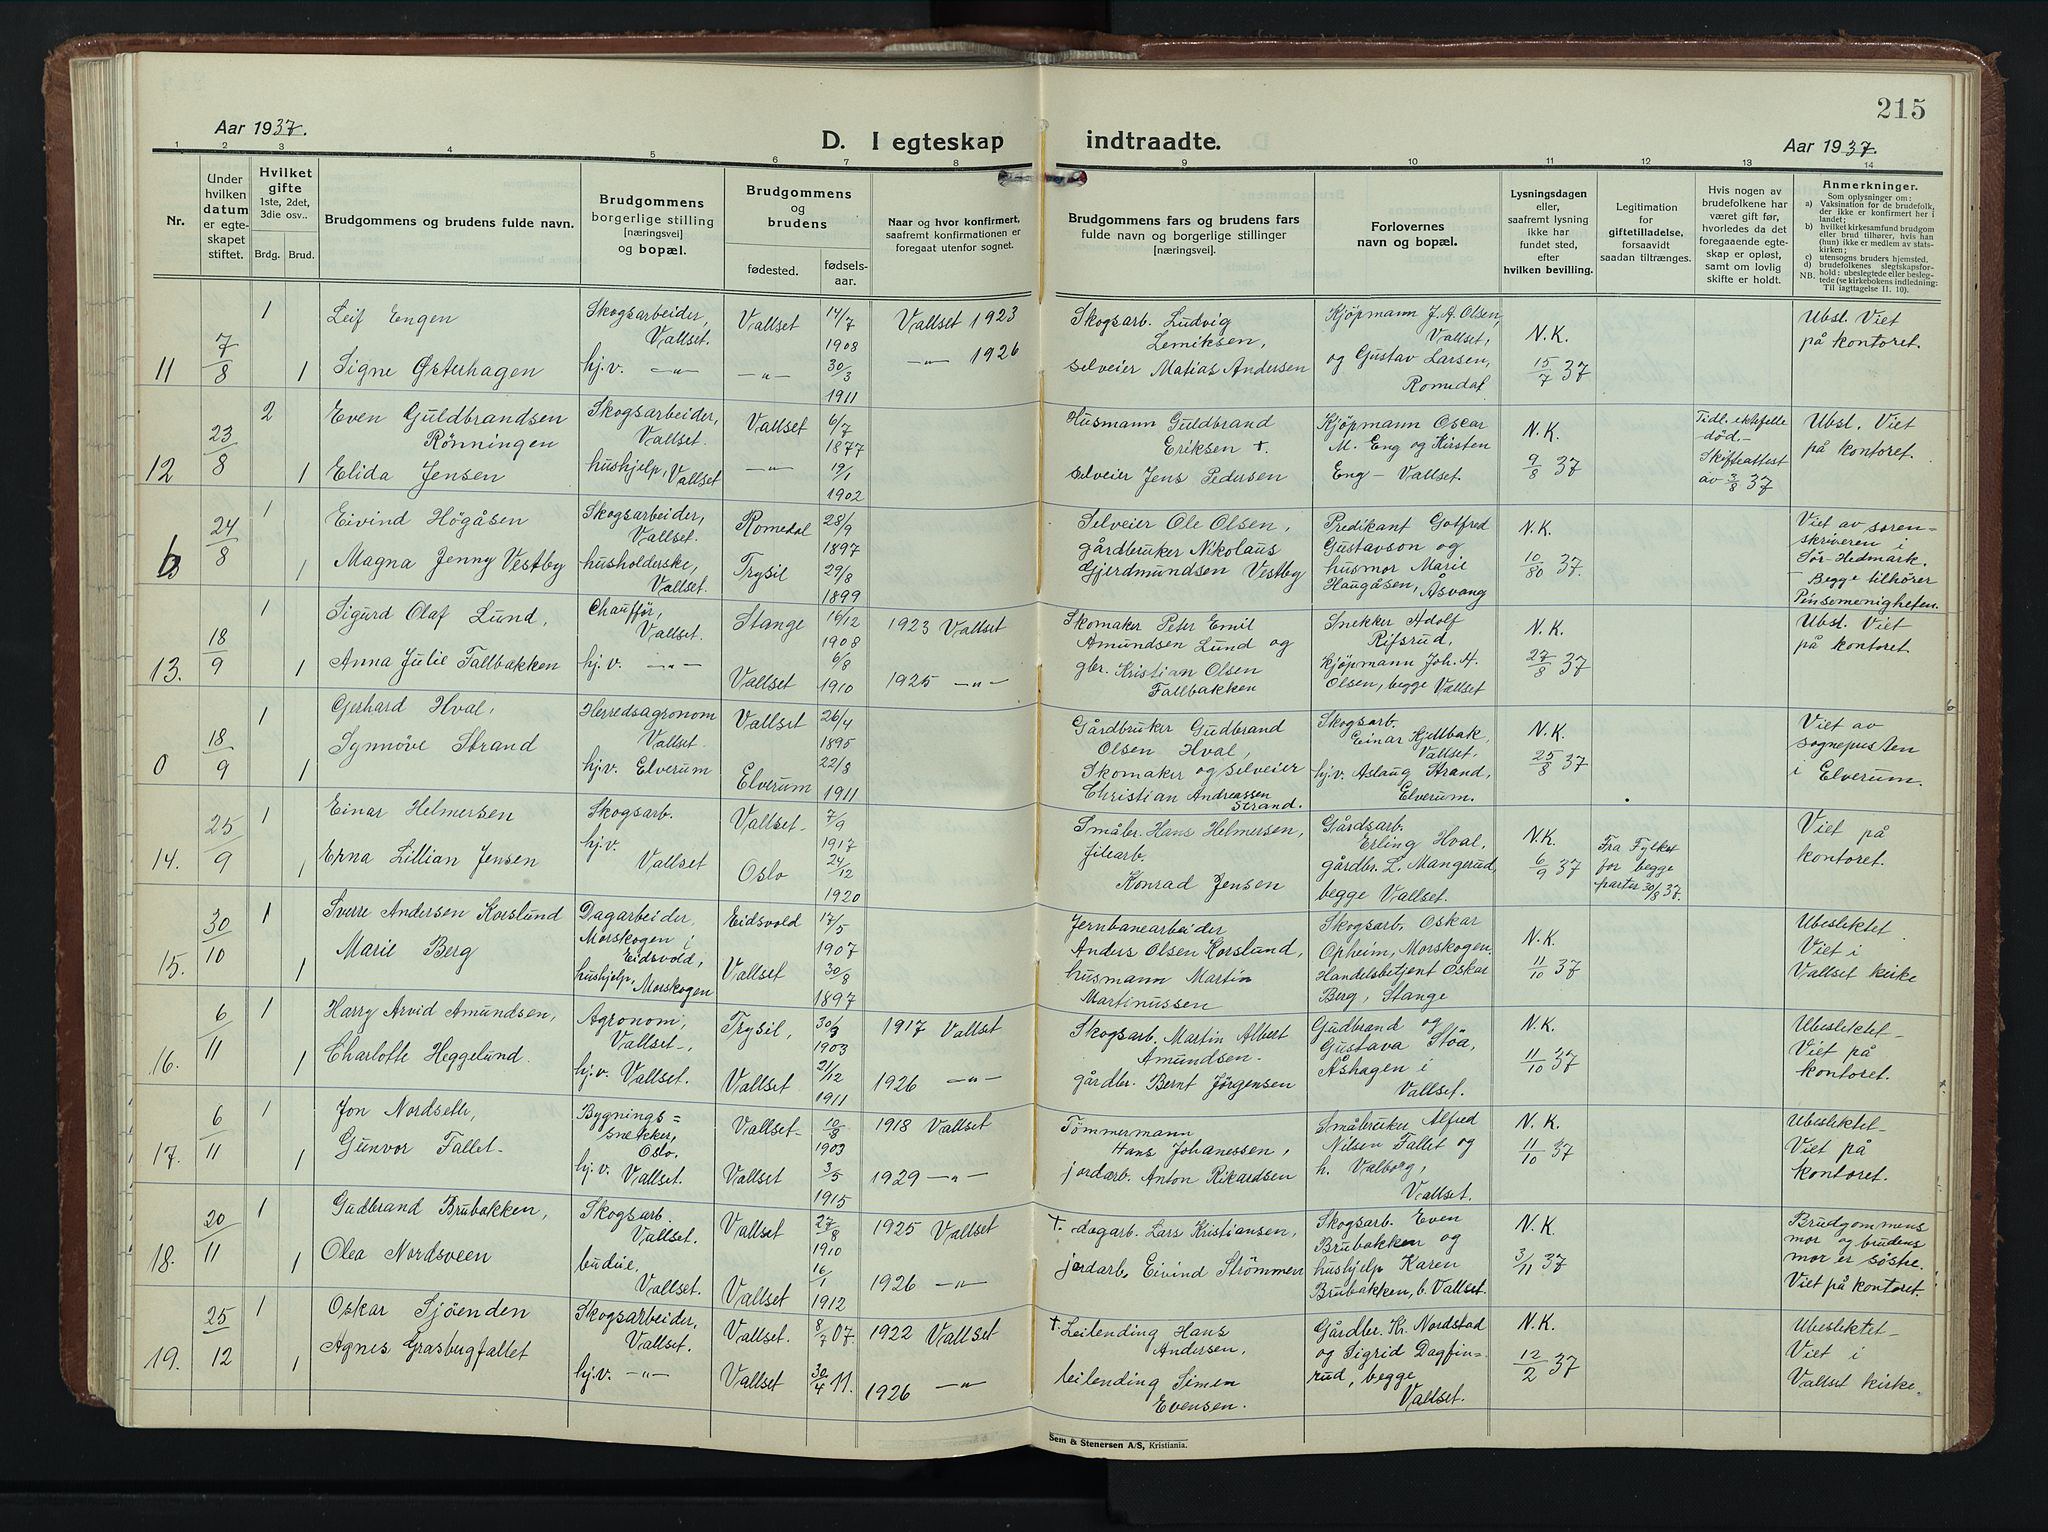 215
Aar 1937.
D. I egteskap indtraadte.
Aar 1937.
1 2 3 4 5 6 7 8 9 10 11 12 13 14
Nr.
Under hvilken datum er egteskapet stiftet.
Hvilket gifte 1ste, 2det, 3die osv..
Brdg. Brud.
Brudgommens og brudens fulde navn.
Brudgommens borgerlige stilling [næringsvei] og bopæl.
Brudgommens og brudens
fødested. fødselsaar.
Naar og hvor konfirmert, saafremt konfirmationen er foregaat utenfor sognet.
Brudgommens fars og brudens fars fulde navn og borgerlige stillinger [næringsvei].
Forlovernes navn og bopæl.
Lysningsdagen eller, saafremt lysning ikke har fundet sted, efter hvilken bevilling.
Legitimation for giftetilladelse, forsaavidt saadan tiltrænges.
Hvis nogen av brudefolkene har været gift før, hvorledes da det foregaaende egteskap er opløst, samt om lovlig skifte er holdt.
Anmerkninger.
Som oplysninger om:
a) Vaksination for de brudefolk, der ikke er konfirmert her i landet;
b) hvilket kirkesamfund brudgom eller brud tilhører, hvis han (hun) ikke er medlem av statskirken;
c) utensogns bruders hjemsted.
d) brudefolkenes slegtskapsforhold: ubeslegtede eller beslegtede (se kirkebokens indledning:
NB. Til iagttagelse II. 10).
11 7/8 1 Leif Engen Skogsarbeider, Vallset. Vallset 14/7 1908 Vallset 1923 Skogsarb. Ludvig Lemiksen, Kjøpmann J. A. Olsen, Vallset, N.K. 15/7 37 Ubsl. Viet på kontoret.
1 Signe Østerhagen hj.v. —"— —"— 30/3 1911 —"— 1926 selveier Matias Andersen og Gustav Larsen, Romedal
12 23/8 2 Even Guldbrandsen Rønningen Skogsarbeider, Vallset. Vallset 6/7 1877 Husmann Guldbrand Eriksen +. Kjøpmann Oscar M. Eng og Kirsten N.K. 9/8 37 Tidl. ektefelle død.— Skifteattest av 3/8 37 Ubsl. Viet på kontoret.
1 Elida Jensen hushjelp, Vallset —"— 19/1 1902 selveier Jens Pedersen Eng – Vallset.
24/8 1 Eivind Högåsen Skogsarbeider, Vallset. Romedal 28/9 1897 Selveier Ole Olsen, Predikant Gotfred Gustavson og N.K. 10/80 37. Viet av sorenskriveren i Sør-Hedmark. – Begge tilhører Pinsemenigheten.
1 Magna Jenny Vestby husholderske, Vallset. Trysil 29/8 1899 gårdbruker Nikolaus Gjerdmundsen Vestby husmor Marie Haugåsen, Åsvang
13. 18/9 1 Sigurd Olaf Lund, Chauffør, Vallset. Stange 16/12 1908 1923 Vallset Skomaker Peter Emil Amundsen Lund og Snekker Adolf Rifsrud, N.K. 27/8 37 Ubsl. Viet på kontoret.
1 Anna Julie Fallbakken hj.v. —"— Vallset 6/8 1910 1925 —"— gbr. Kristian Olsen Fallbakken kjöpmann Joh. A. Olsen, begge Vallset
0 18/9 1 Gerhard Hval, Herredsagronom Vallset. Vallset 26/4 1895 Gårdbruker Gudbrand Olsen Hval, Skogsarb. Einar Kjellbak, Vallset, N.K. 25/8 37 Viet av sogneprsten i Elverum.
1 Synnöve Strand hj.v. Elverum Elverum 22/8 1911 Skomaker og selveier Christian Andreassen Strand. hj.v. Aslaug Strand, Elverum.
14. 25/9 1 Einar Helmersen Skogsarb. Vallset 7/9 1917 Småbr. Hans Helmersen, Gårdsarb. Erling Hval, N.K. 6/9 37 Fra Fylket for begge parter 30/8 37. Viet på kontoret.
1 Erna Lillian Jensen hj.v. Vallset Oslo 24/12 1920 filearb. Konrad Jensen gårdbr. L. Mangerud, begge Vallset.
15. 30/10 1 Sverre Andersen Korslund Dagarbeider, Morskogen i Eidsvold, Eidsvold 17/5 1907 Jernbanearbeider Anders Olsen Korslund, Skogsarb. Oskar Opheim, Morskogen. N.K. 11/10 37 Ubesliktet Viet i Vallset kirke
1 Marie Berg hushjelp, Morskogen Vallset 30/8 1897 husmann Martin Martinussen Handelsbetjent Oskar Berg, Stange
16. 6/11 1 Harry Arvid Amundsen, Agronom, Vallset, Trysil, 30/3 1903 1917 Vallset Skogsarb. Martin Albert Amundsen. Gudbrand og Gustava Stöa, N.K. 11/10 37 Ubesliktet Viet på kontoret.
1 Charlotte Heggelund. hj.v. Vallset. Vallset 21/12 1911 1926 —"— gårdbr. Bernt Jörgensen Åshagen i Vallset.
17. 6/11 1 Jon Nordseth, Bygnings=snekker, Oslo. Vallset 10/8 1903 1918 Vallset Tömmermann Hans Johanessen, Småbruker Alfred Nilsen Fallet og N.K. 11/10 37 Ubesliktet. Viet på kontoret.
1 Gunvor Fallet hj.v. Vallset. Vallset 3/5 1915 1929 —"— jordarb. Anton Rikardsen h. Valborg, Vallset.
18. 20/11 1 Gudbrand Brubakken, Skogsarb. Vallset. Vallset 27/8 1910 1925 Vallset +. dagarb. Lars Kristiansen, Skogsarb. Even Brubakken og N.K. 3/11 37 Brudgommens mor og brudens mor er søstre. Viet på kontoret.
1 Olea Nordsveen budeie, Vallset. Vallset 16/1 1912 1926 —"— jordarb. Eivind Strömmen hushjelp Karen Brubakken, b. Vallset.
19. 25/12 1 Oskar Sjöenden Skogsarbeider, Vallset. Vallset. 8/7 07. 1922 Vallset +. Leilending Hans Andersen, Gårdbr. Kr. Nordstad og Sigrid Dagfinrud, N.K. 12/2 37 Ubesliktet Viet i Vallset kirke.
1 Agnes Grasbergfallet hj.v. —"— Vallset 30/4 11. 1926 —"— leilending Simen Evensen. begge Vallset.
Sem & Stenersen A/S, Kristiania.